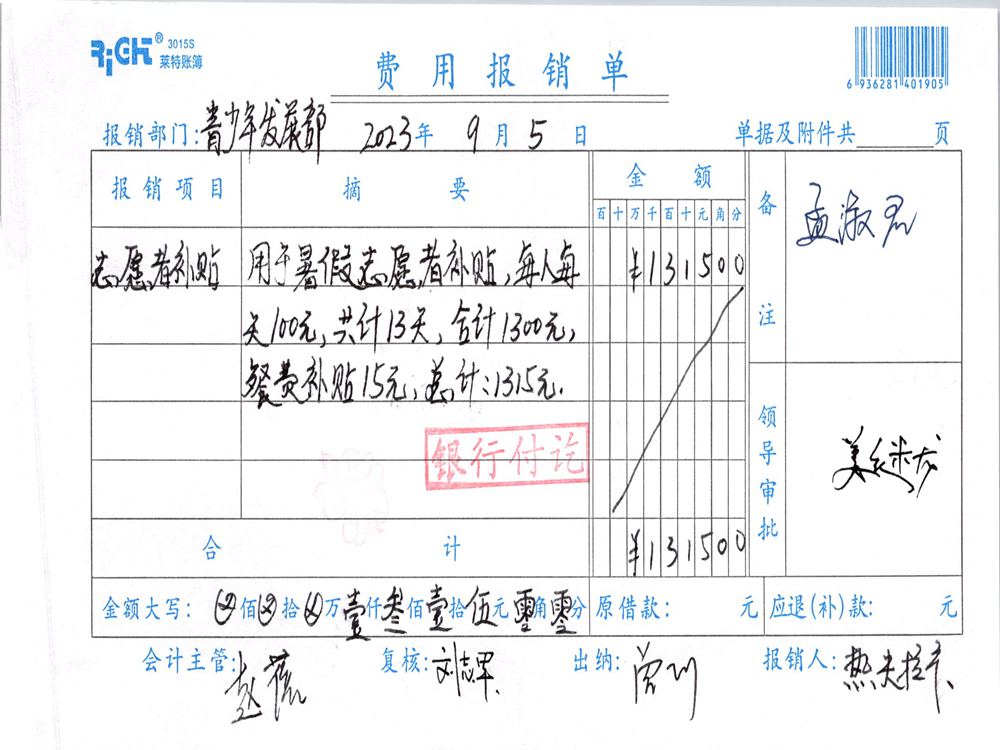 RiGHT® 3015S
莱特账簿
费用报销单
6 936281 401905
报销部门:青少年发展部 2023年 9月5日 单据及附件共 页
报销项目 摘要 金额 备注 孟淑君
百十万千百十元角分
志愿者补贴 用于暑假志愿者补贴,每人每 ¥131500
天100元,共计13天,合计1300元,
餐费补贴15元,总计:1315元.
银行付讫
领导审批
合计 ¥131500
金额大写: ⊗佰⊗拾⊗万壹仟叁佰壹拾伍元零角零分 原借款: 元 应退(补)款: 元
会计主管: 复核:刘志军 出纳:曾川 报销人:热夫拉卡